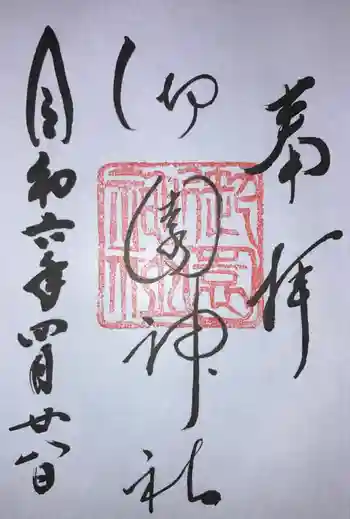 奉拝
御園神社
令和六年四月廿八日